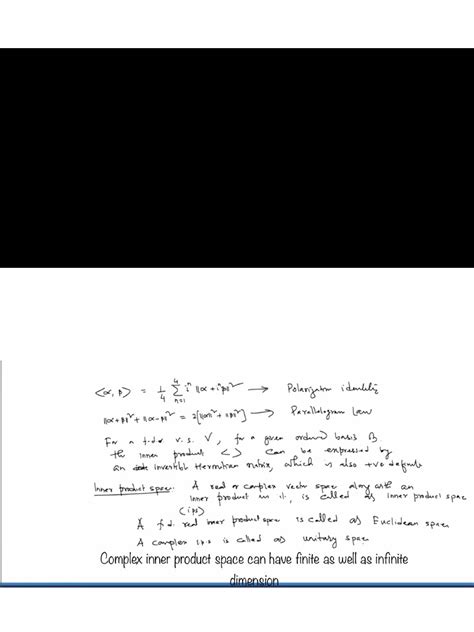 <α, β> = 1/4 Σ_{n=1}^{4} i^n ||α + i^n β||² → Polarization identity
||α+β||² + ||α-β||² = 2[||α||² + ||β||²] → Parallelogram Law
For a f.d. v.s. V, for a given ordered basis B
the inner product < > can be expressed by
an invertible Hermitian matrix, which is also +ve definite
Inner product space: A real or complex vector space along with an
inner product on it, is called as inner product space
(ips)
A f.d. real inner product space is called as Euclidean space
A complex i.p.s is called as unitary space
Complex inner product space can have finite as well as infinite
dimension